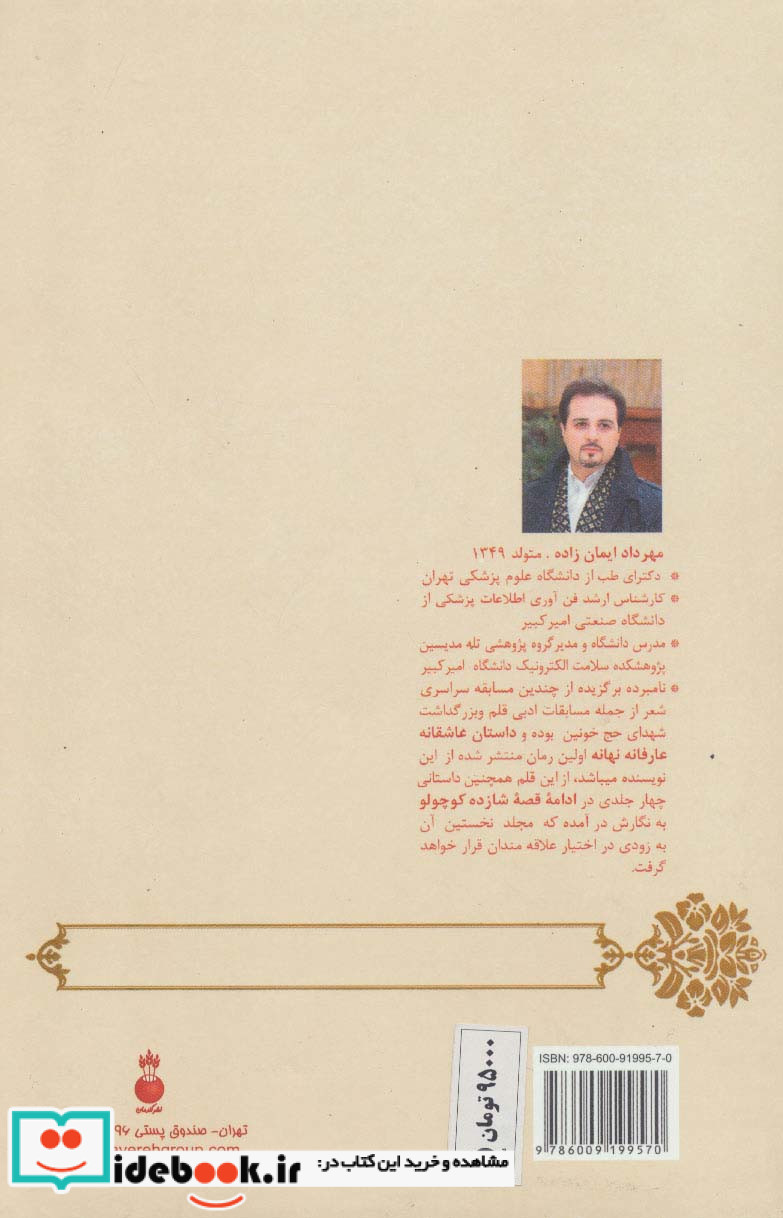 مهرداد ایمان زاده . متولد ۱۳۴۹
* دکترای طب از دانشگاه علوم پزشکی تهران
* کارشناس ارشد فن آوری اطلاعات پزشکی از
دانشگاه صنعتی امیرکبیر
* مدرس دانشگاه و مدیر گروه پژوهشی تله مدیسین
پژوهشکده سلامت الکترونیک دانشگاه امیرکبیر
* نامبرده برگزیده از چندین مسابقه سراسری
شعر از جمله مسابقات ادبی قلم وبزرگداشت
شهدای حج خونین بوده و داستان عاشقانه
عارفانه نهانه اولین رمان منتشر شده از این
نویسنده میباشد، از این قلم همچنین داستانی
چهار جلدی در ادامهٔ قصهٔ شازده کوچولو
به نگارش در آمده که مجلد نخستین آن
به زودی در اختیار علاقه مندان قرار خواهد
گرفت.
ISBN: 978-600-91995-7-0
9 786009 199570
۹۵۰۰۰ تومان
تهران- صندوق پستی ۹۶
مشاهده و خرید این کتاب در:
idebook.ir